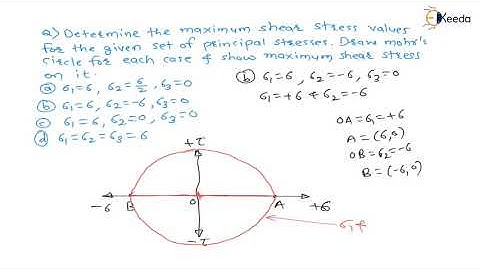 Q) Determine the maximum shear stress values
for the given set of principal stresses. Draw mohr's
circle for each case & show maximum shear stress
on it.
ⓐ σ1=σ, σ2=σ/2, σ3=0
ⓑ σ1=σ, σ2=-σ, σ3=0
ⓒ σ1=σ, σ2=0, σ3=0
ⓓ σ1=σ2=σ3=σ
Ekeeda
ⓑ σ1=σ, σ2=-σ, σ3=0
σ1=+σ & σ2=-σ
OA=σ1=+σ
A=(σ,0)
OB=σ2=-σ
B=(-σ,0)
+τ
-σ B O A +σ
-τ
σ1 &